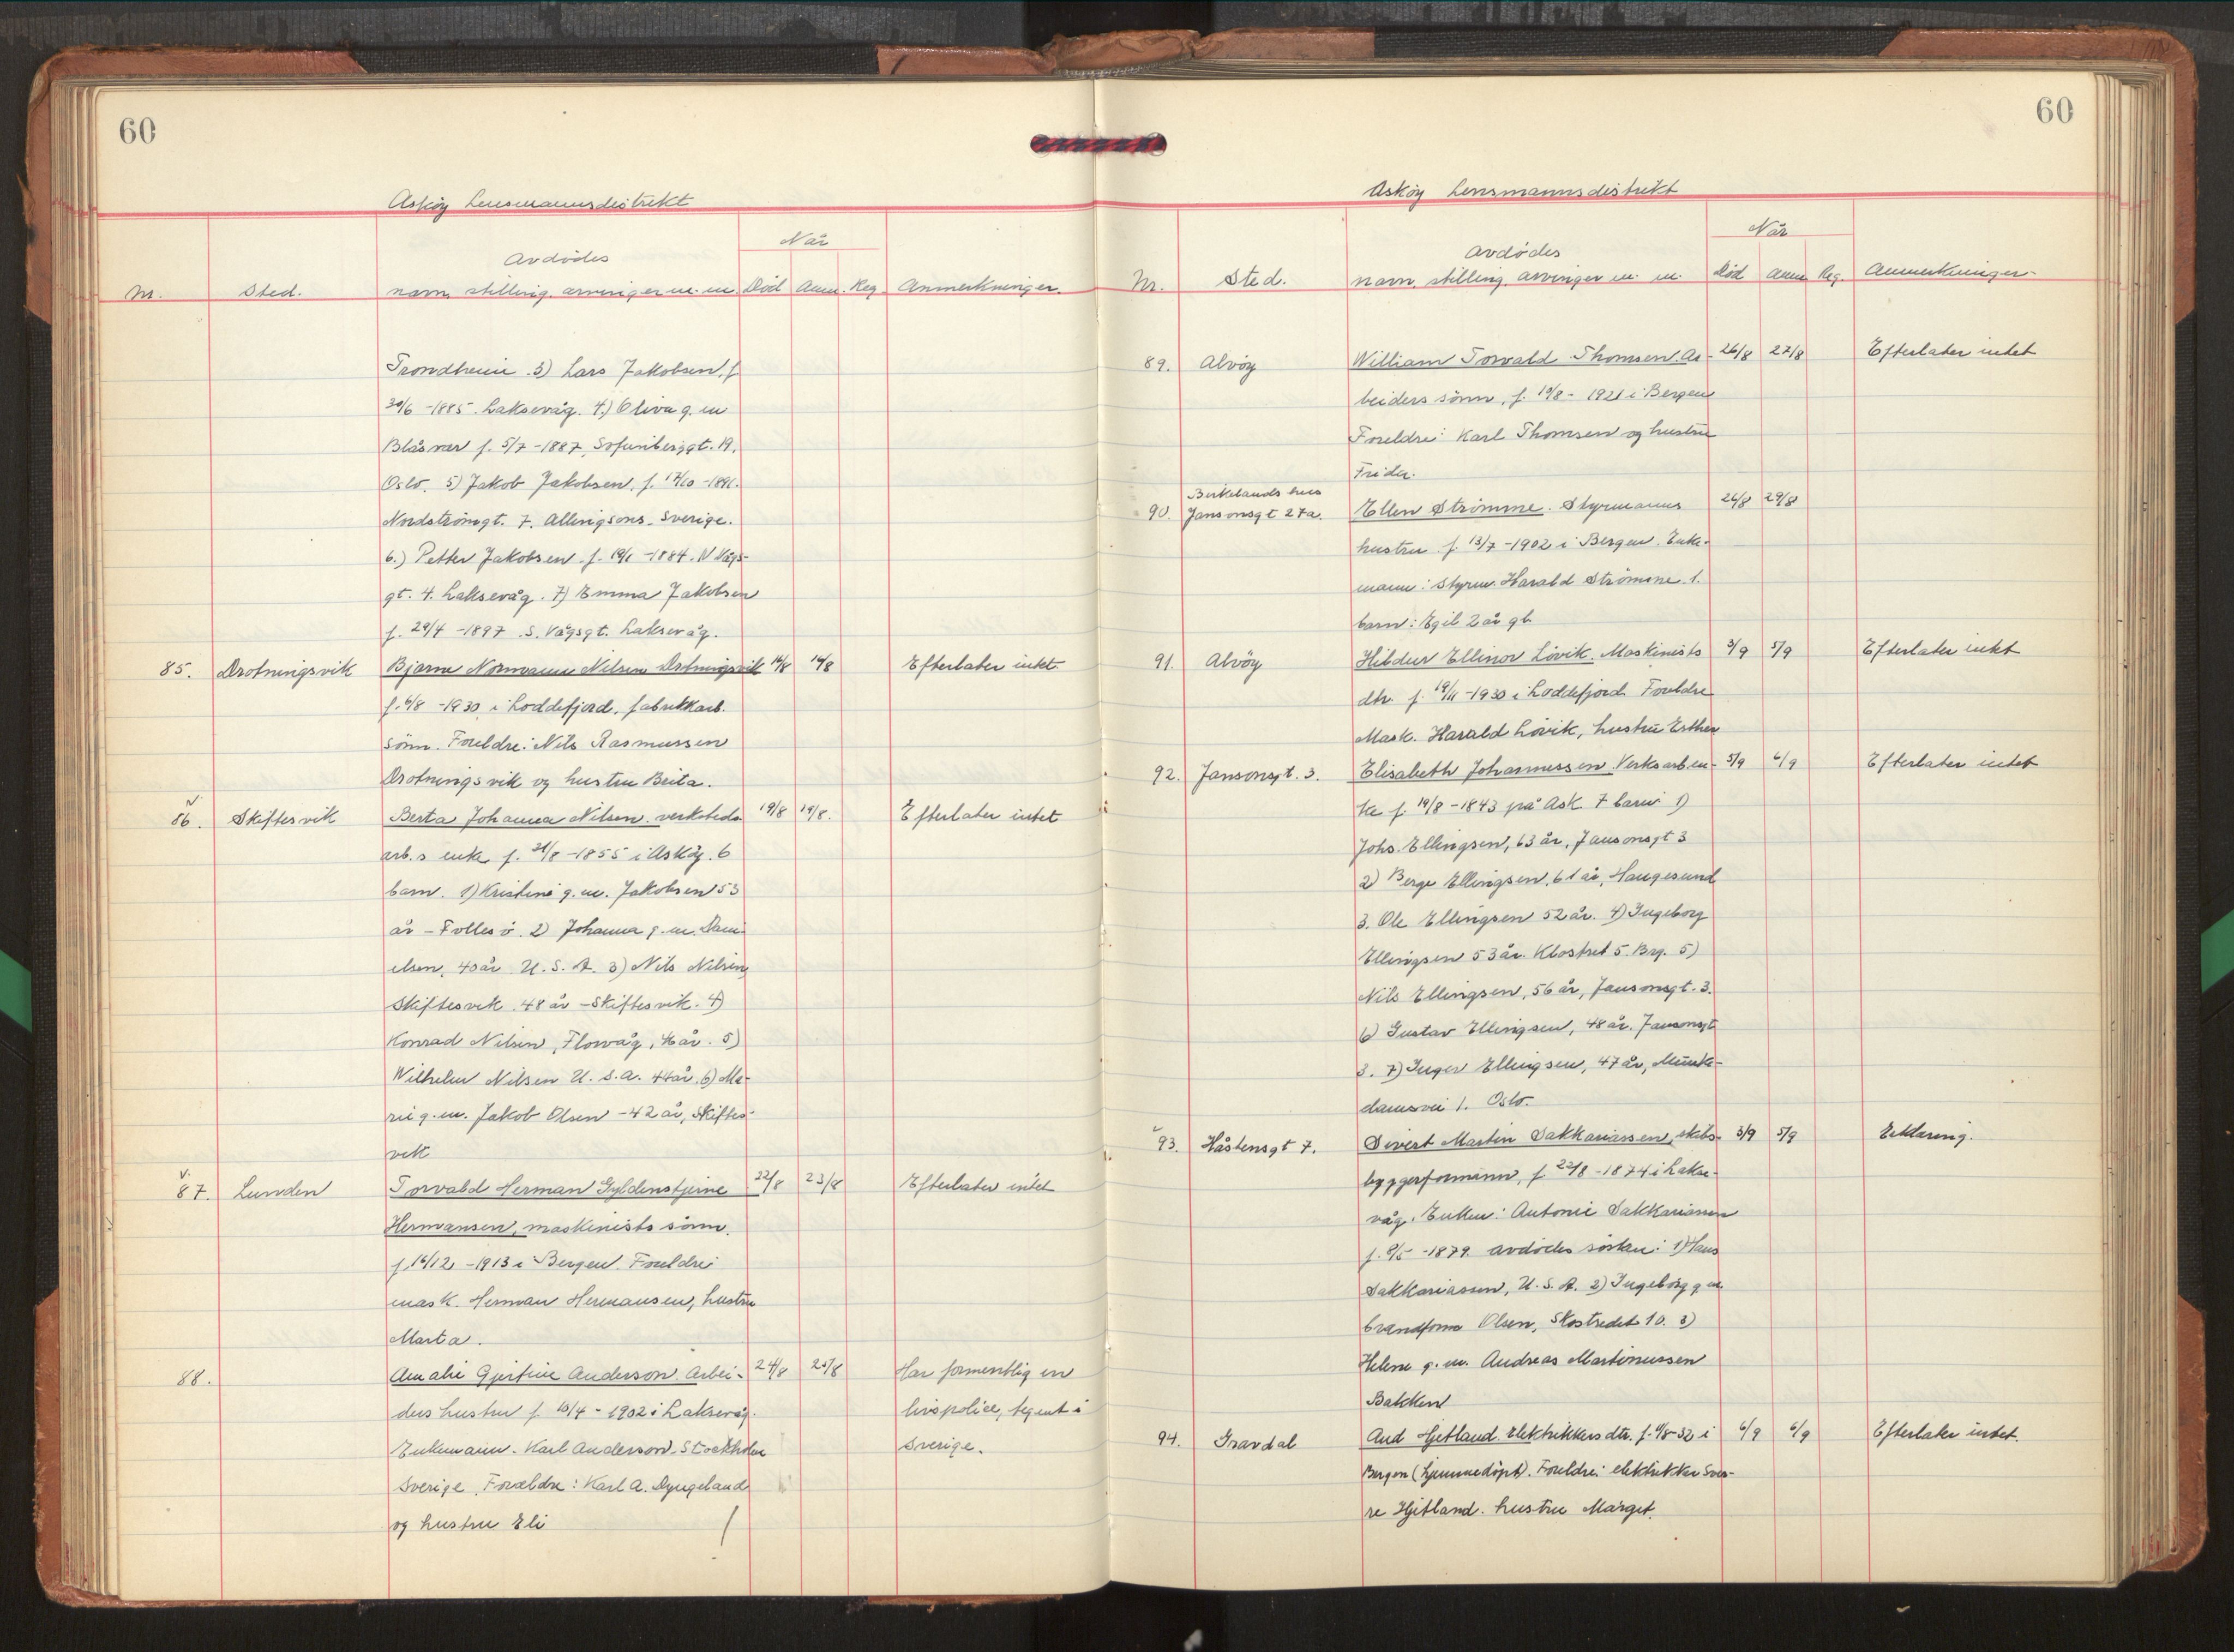 60
Askøy Lensmannsdistrikt
Når
Avdödes
Nr. Sted. navn stilling arvinger m. m. Död Anm. Reg. Anmerkninger.
Trondheim. 3) Lars Jakobsen, f.
30/6 -1885. Laksevåg. 4.) Oliva g. m
Blåsvær f. 5/7 -1887, Sofienberggt. 19.
Oslo. 5) Jakob Jakobsen, f. 17/10 -1891.
Nordströmsgt. 7. Allingsons. Sverige.
6.) Petter Jakobsen. f. 19/1 -1884. N Vågs-
gt. 4. Laksevåg. 7) Emma Jakobsen
f. 29/4 -1897. S. Vågsgt. Laksevåg.
85. Drotningsvik Bjarne Normann Nilsen Drotningsvik 14/8 14/8 Efterlater intet.
f. 6/8 -1930 i Loddefjord, fabrikkarb.
sönn. Foreldre: Nils Rasmussen
Drotningsvik og hustru Brita.
v
86. Skiftesvik Berta Johanna Nilsen. verksteds 19/8 19/8. Efterlater intet
arb.s enke f. 21/8 -1855 i Asköy. 6
barn. 1) Kristine g. m. Jakobsen 53
år - Follesö. 2) Johanna g. m. Dani-
elsen, 40 år U. S. A. 3) Nils Nilsen
Skiftesvik 48 år - Skiftesvik. 4)
Konrad Nilsen, Florvåg, 46 år. 5)
Wilhelm Nilsen U. S. A. 44 år. 6) Ma-
rie g. m. Jakob Olsen - 42 år, Skiftes-
vik
v.
87. Lunden Torvald Herman Gyldenstjerne 22/8 23/8 Efterlater intet
Hermansen, maskinists sönn.
f. 16/12 -1913 i Bergen. Foreldre:
mask. Herman Hermansen, hustru
Marta.
88. Amalie Gjertine Anderson. Arbei- 24/8 25/8 Har formentlig en
ders hustru f. 10/4 - 1902 i Laksevåg. livspolice, tegnet i
Enkemann. Karl Anderson, Stockholm Sverige.
Sverige. Forældre: Karl A. Dyngeland
og hustru Eli
60
Asköy Lensmannsdistrikt
Når
Avdödes
Nr. Sted. navn stilling arvinger m. m. Död Anm Reg. Anmerkninger.
89. Alvöy William Torvald Thomsen. Ar- 26/8 27/8 Efterlater intet
beiders sönn, f. 19/8 - 1921 i Bergen
Foreldre: Karl Thomsen og hustru
Frida.
Birkelands hus
90. Jansonsgt 27a. Ellen Strömme. Styrmanns 26/8 29/8
hustru f. 13/7 -1902 i Bergen. Enke-
mann: Styrm. Harald Strömme. 1.
barn: Egil 2 år gl.
91. Alvöy Hildur Ellinor Lövik. Maskinists 3/9 5/9 Efterlater intet
dtr. f. 19/11 -1930 i Loddefjord Foreldre
Mask. Harald Lövik, hustru Esther
92. Jansonsgt. 3. Elisabeth Johannessen Verksarb en- 5/9 6/9 Efterlater intet
ke f. 19/8 -1843 på Ask 7 barn: 1)
Johs. Ellingsen, 63 år, Jansonsgt 3
2) Berge Ellingsen, 61 år, Haugesund
3. Ole Ellingsen 52 år. 4) Ingeborg
Ellingsen 53 år. Klostret 5. Brg. 5)
Nils Ellingsen, 56 år, Jansonsgt. 3.
6) Gustav Ellingsen, 48 år. Jansonsgt
3. 7) Inger Ellingsen, 47 år, Munke-
damsvei 1. Oslo.
93. Håstensgt 7. Sivert Martin Sakkariassen, skibs- 3/9 5/9 Erklæring.
byggerformann, f. 22/8 -1874 i Lakse-
våg. Enken: Antonie Sakkariassen
f. 8/5 -1879. avdödes sösken: 1) Hans
Sakkariassen, U. S. A. 2) Ingeborg g m
brandform Olsen, Skostredet 10. 3)
Helene g. m. Andreas Martinussen
Bakken
94. Gravdal Aud Hjetland Elektrikkers dtr. f. 4/8-32 i 6/9 6/9 Efterlater intet.
Bergen (hjemmedöpt). Foreldre: elektrikker Sver-
re Hjetland. hustru Marget.